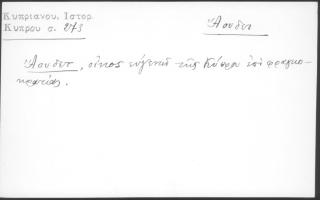 Κυπριανου, Ιστορ.
Κυπρου σ. 273
Ἀουδετ
Ἀουδετ, οἶκος εὐγενὴς τῆς Κύπρου ἐπὶ φραγκο-
κρατίας.